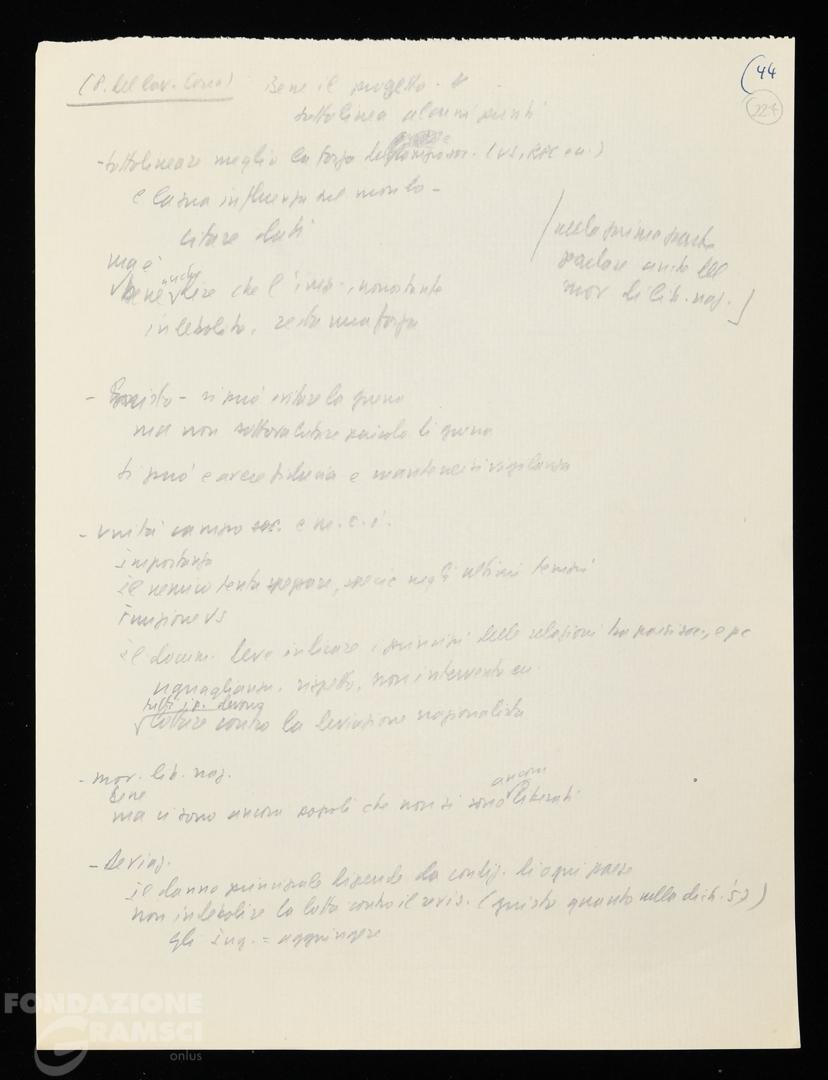 (44
227
(P. del lav. Corea) Bene il progetto.
sottolinea alcuni punti
- sottolineare meglio la forza del campo soc. (US, RPC ecc.)
e la sua influenza nel mondo -
citare dati
ma è
bene anche dire che l'imp. nonostante
indebolito, resta una forza
nella prima parte
parlare anche del
mov di lib. naz.
- giusto - si può evitare la guerra
ma non sottovalutare pericolo di guerra
si può e avere fiducia e mantenersi vigilanza
- unità campo soc. e m. c. i.
importanza
il nemico tenta spezzare, specie negli ultimi tempi
funzione US
il docum. deve indicare i principi delle relazioni tra paesi soc. e pc
uguaglianza, rispetto, non intervento ecc.
tutti i p. devono
lottare contro la deviazione nazionalista
- mov. lib. naz.
bene
ma ci sono ancora popoli che non si sono ancora liberati
- Deviaz.
il danno principale dipende da condiz. di ogni paese
non indebolire la lotta contro il revis. (giusto quanto nella dich. '57)
aggiungere
FONDAZIONE
GRAMSCI
onlus